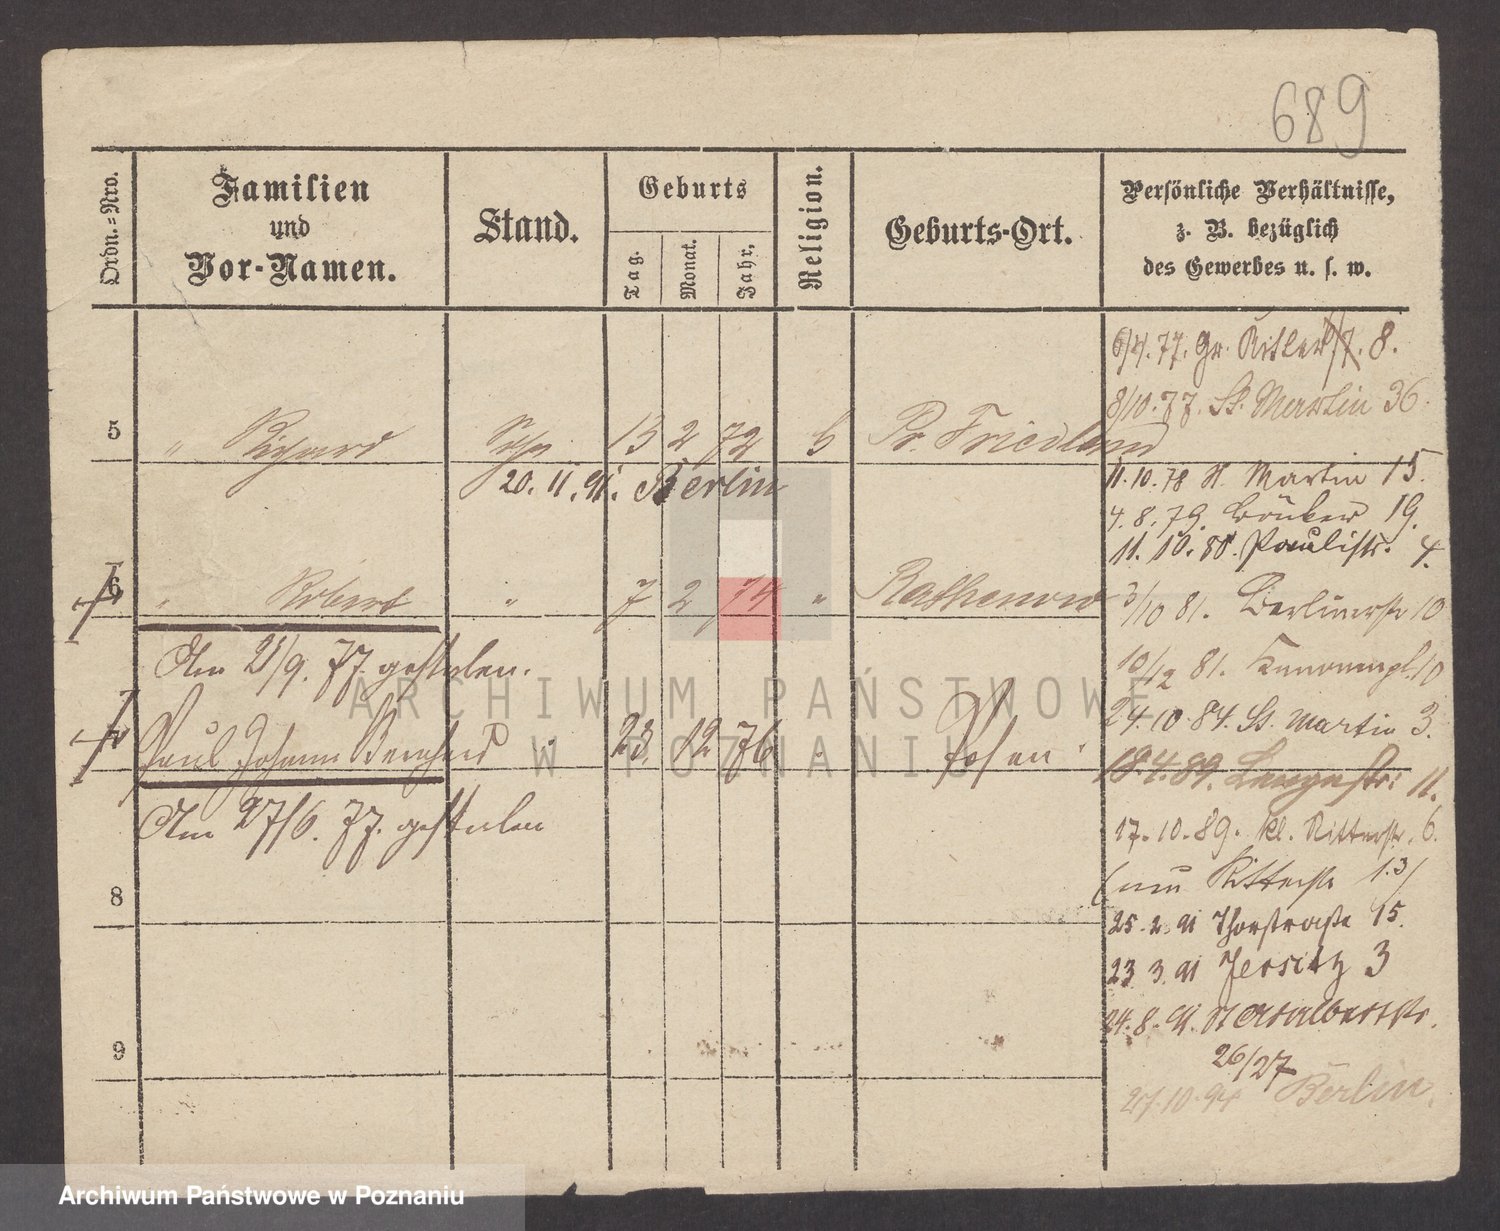 689
Ordn.-Nro.
Familien
und
Vor-Namen.
Stand.
Geburts
Tag.
Monat.
Jahr.
Religion.
Geburts-Ort.
Persönliche Verhältnisse,
z. B. bezüglich
des Gewerbes u. s. w.
77. Gr. Ritter 8.
8/10. 77. St. Martin 36.
5 " Richard 13 2 72 Pr. Friedland
20. 11. 91. Berlin
11. 10. 78 St. Martin 15.
4. 8. 79. 19.
11. 10. 80. Paulistr. 4.
6 " Robert " 7 2 74 " Rathenow
3/10 81. Berlinerstr 10
Am 21/9. 77. gestorben.
10/12 81. Kanonenpl. 10
24. 10 84. St. Martin 3.
7 Paul Johann Bernhard " 23. 12 76 " Posen
18. 4. 89. Langestr: 11.
Am 27/6. 77. gestorben
17. 10. 89. kl. Ritterstr. 6.
(nun Ritterstr 13)
8
25. 2. 91 Thorstraße 15.
23 3. 91 Jersitz 3
24. 8. 91. St Adalbertstr.
26/27
9
10. 94 Berlin.
ARCHIWUM PAŃSTWOWE
W POZNANIU
Archiwum Państwowe w Poznaniu